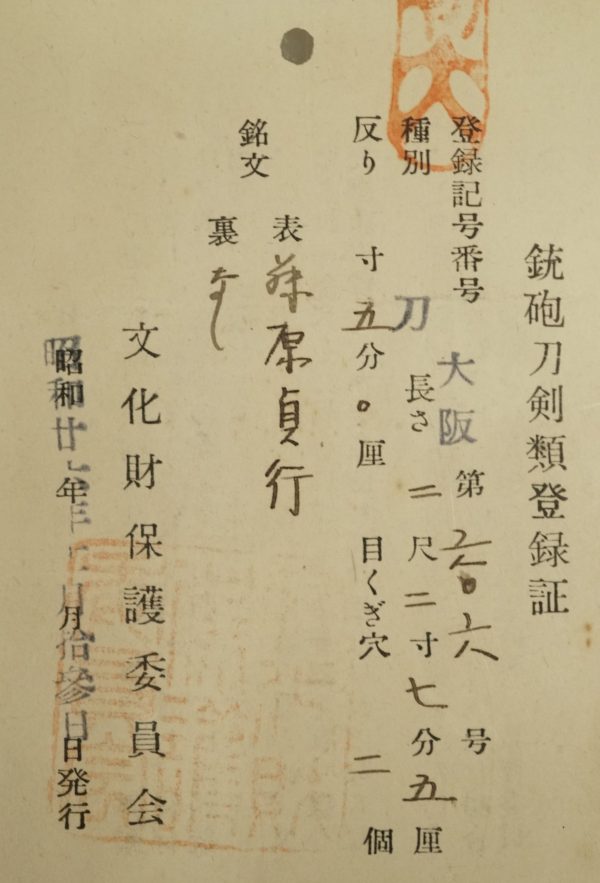 銃砲刀剣類登録証
登録記号番号 大阪 第 号
種別 刀 長さ 二尺二寸七分五厘
反り 寸五分〇厘 目くぎ穴 二個
銘文 表 藤原貞行
裏 なし
文化財保護委員会
昭和廿 年 月拾参日発行